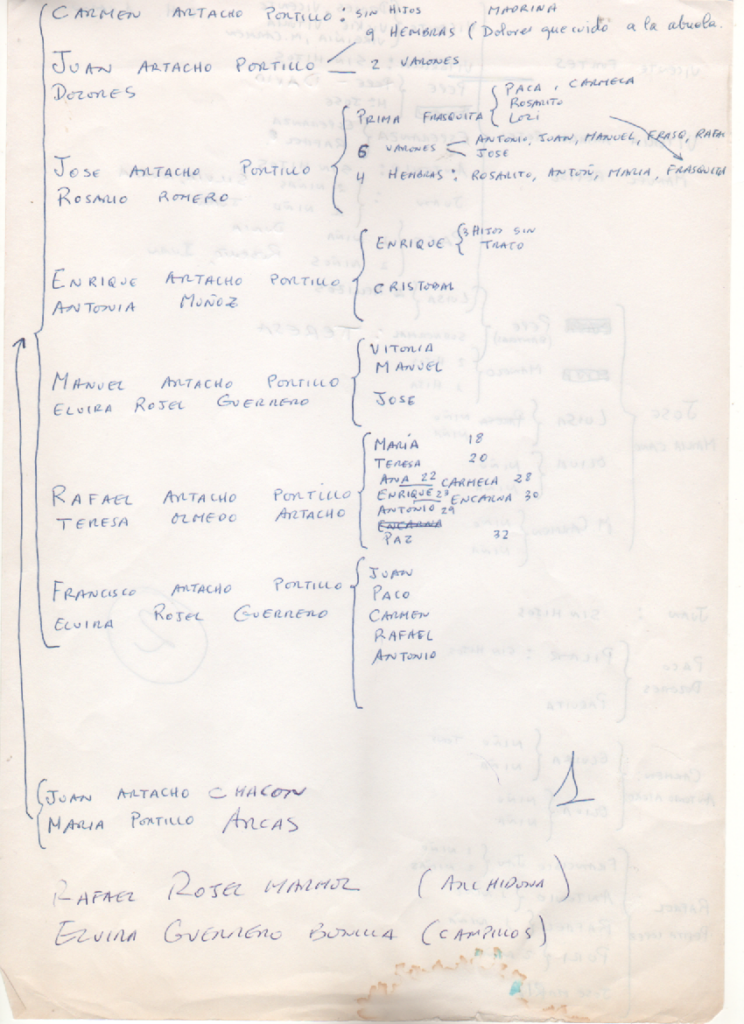 CARMEN ARTACHO PORTILLO: SIN HIJOS MADRINA
9 HEMBRAS (Dolores que cuido a la abuela.
JUAN ARTACHO PORTILLO
2 VARONES
DOLORES
PRIMA FRASQUITA
PACA, CARMELA
ROSARITO
LOLI
6 VARONES ANTONIO, JUAN, MANUEL, FRASQ, RAFA
JOSE
JOSE ARTACHO PORTILLO
4 HEMBRAS: ROSARITO, ANTOÑ, MARIA, FRASQUITA
ROSARIO ROMERO
ENRIQUE 3 HIJOS SIN
TRATO
ENRIQUE ARTACHO PORTILLO
CRISTOBAL
ANTONIA MUÑOZ
VITORIA
MANUEL
MANUEL ARTACHO PORTILLO
JOSE
ELVIRA ROJEL GUERRERO
MARÍA 18
TERESA 20
ANA 22 CARMELA 28
ENRIQUE ENCARNA 30
RAFAEL ARTACHO PORTILLO
ANTONIO 29
TERESA OLMEDO ARTACHO
ENCARNA
PAZ 32
JUAN
FRANCISCO ARTACHO PORTILLO
PACO
ELVIRA ROJEL GUERRERO
CARMEN
RAFAEL
ANTONIO
1
JUAN ARTACHO CHACON
MARIA PORTILLO ARCAS
RAFAEL ROJEL MARMOL (ARCHIDONA)
ELVIRA GUERRERO BONILLA (CAMPILLOS)